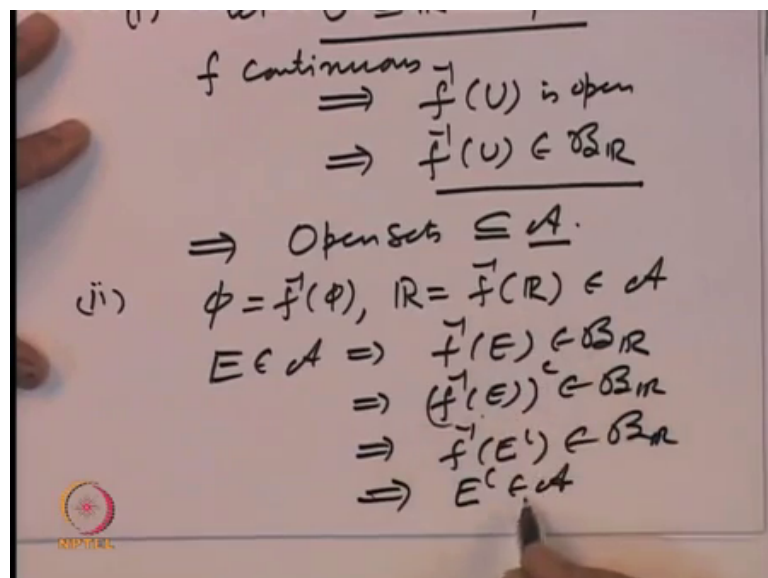 f continuous
⟹ f⁻¹(U) is open
⟹ f⁻¹(U) ∈ 𝓑_ℝ
⟹ Open sets ⊆ 𝒜.
(ii) ϕ = f⁻¹(ϕ), ℝ = f⁻¹(ℝ) ∈ 𝒜
E ∈ 𝒜 ⟹ f⁻¹(E) ∈ 𝓑_ℝ
⟹ (f⁻¹(E))ᶜ ∈ 𝓑_ℝ
⟹ f⁻¹(Eᶜ) ∈ 𝓑_ℝ
⟹ Eᶜ ∈ 𝒜
NPTEL